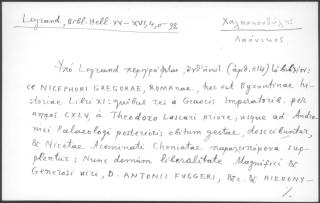 Legrand, Bibl. Hell. XV-XVI, 4, σ 92
Χαλκοκονδύλης
Λαόνικος
Ὑπό Legrand περιγράφεται, (ἀριθ. 614) τό βιβλίον:
« NICEPHORI GREGORAE, ROMANAE, hoc est Byzantinae hi-
storiae Libri XI: quibus res à Graecis Imperatorib. per
annos CXLV, à Theodoro Lascari priore, usque ad Andro-
nici Palaeologi posterioris obitum gestae, describuntur,
& Nicetae Acominati Choniatae παραλειπόμενα sup-
plentur: Nunc demum liberalitate Magnifici &
Generosi viri, D. ANTONII FUGGERI, &c. & HIERONY-
%.